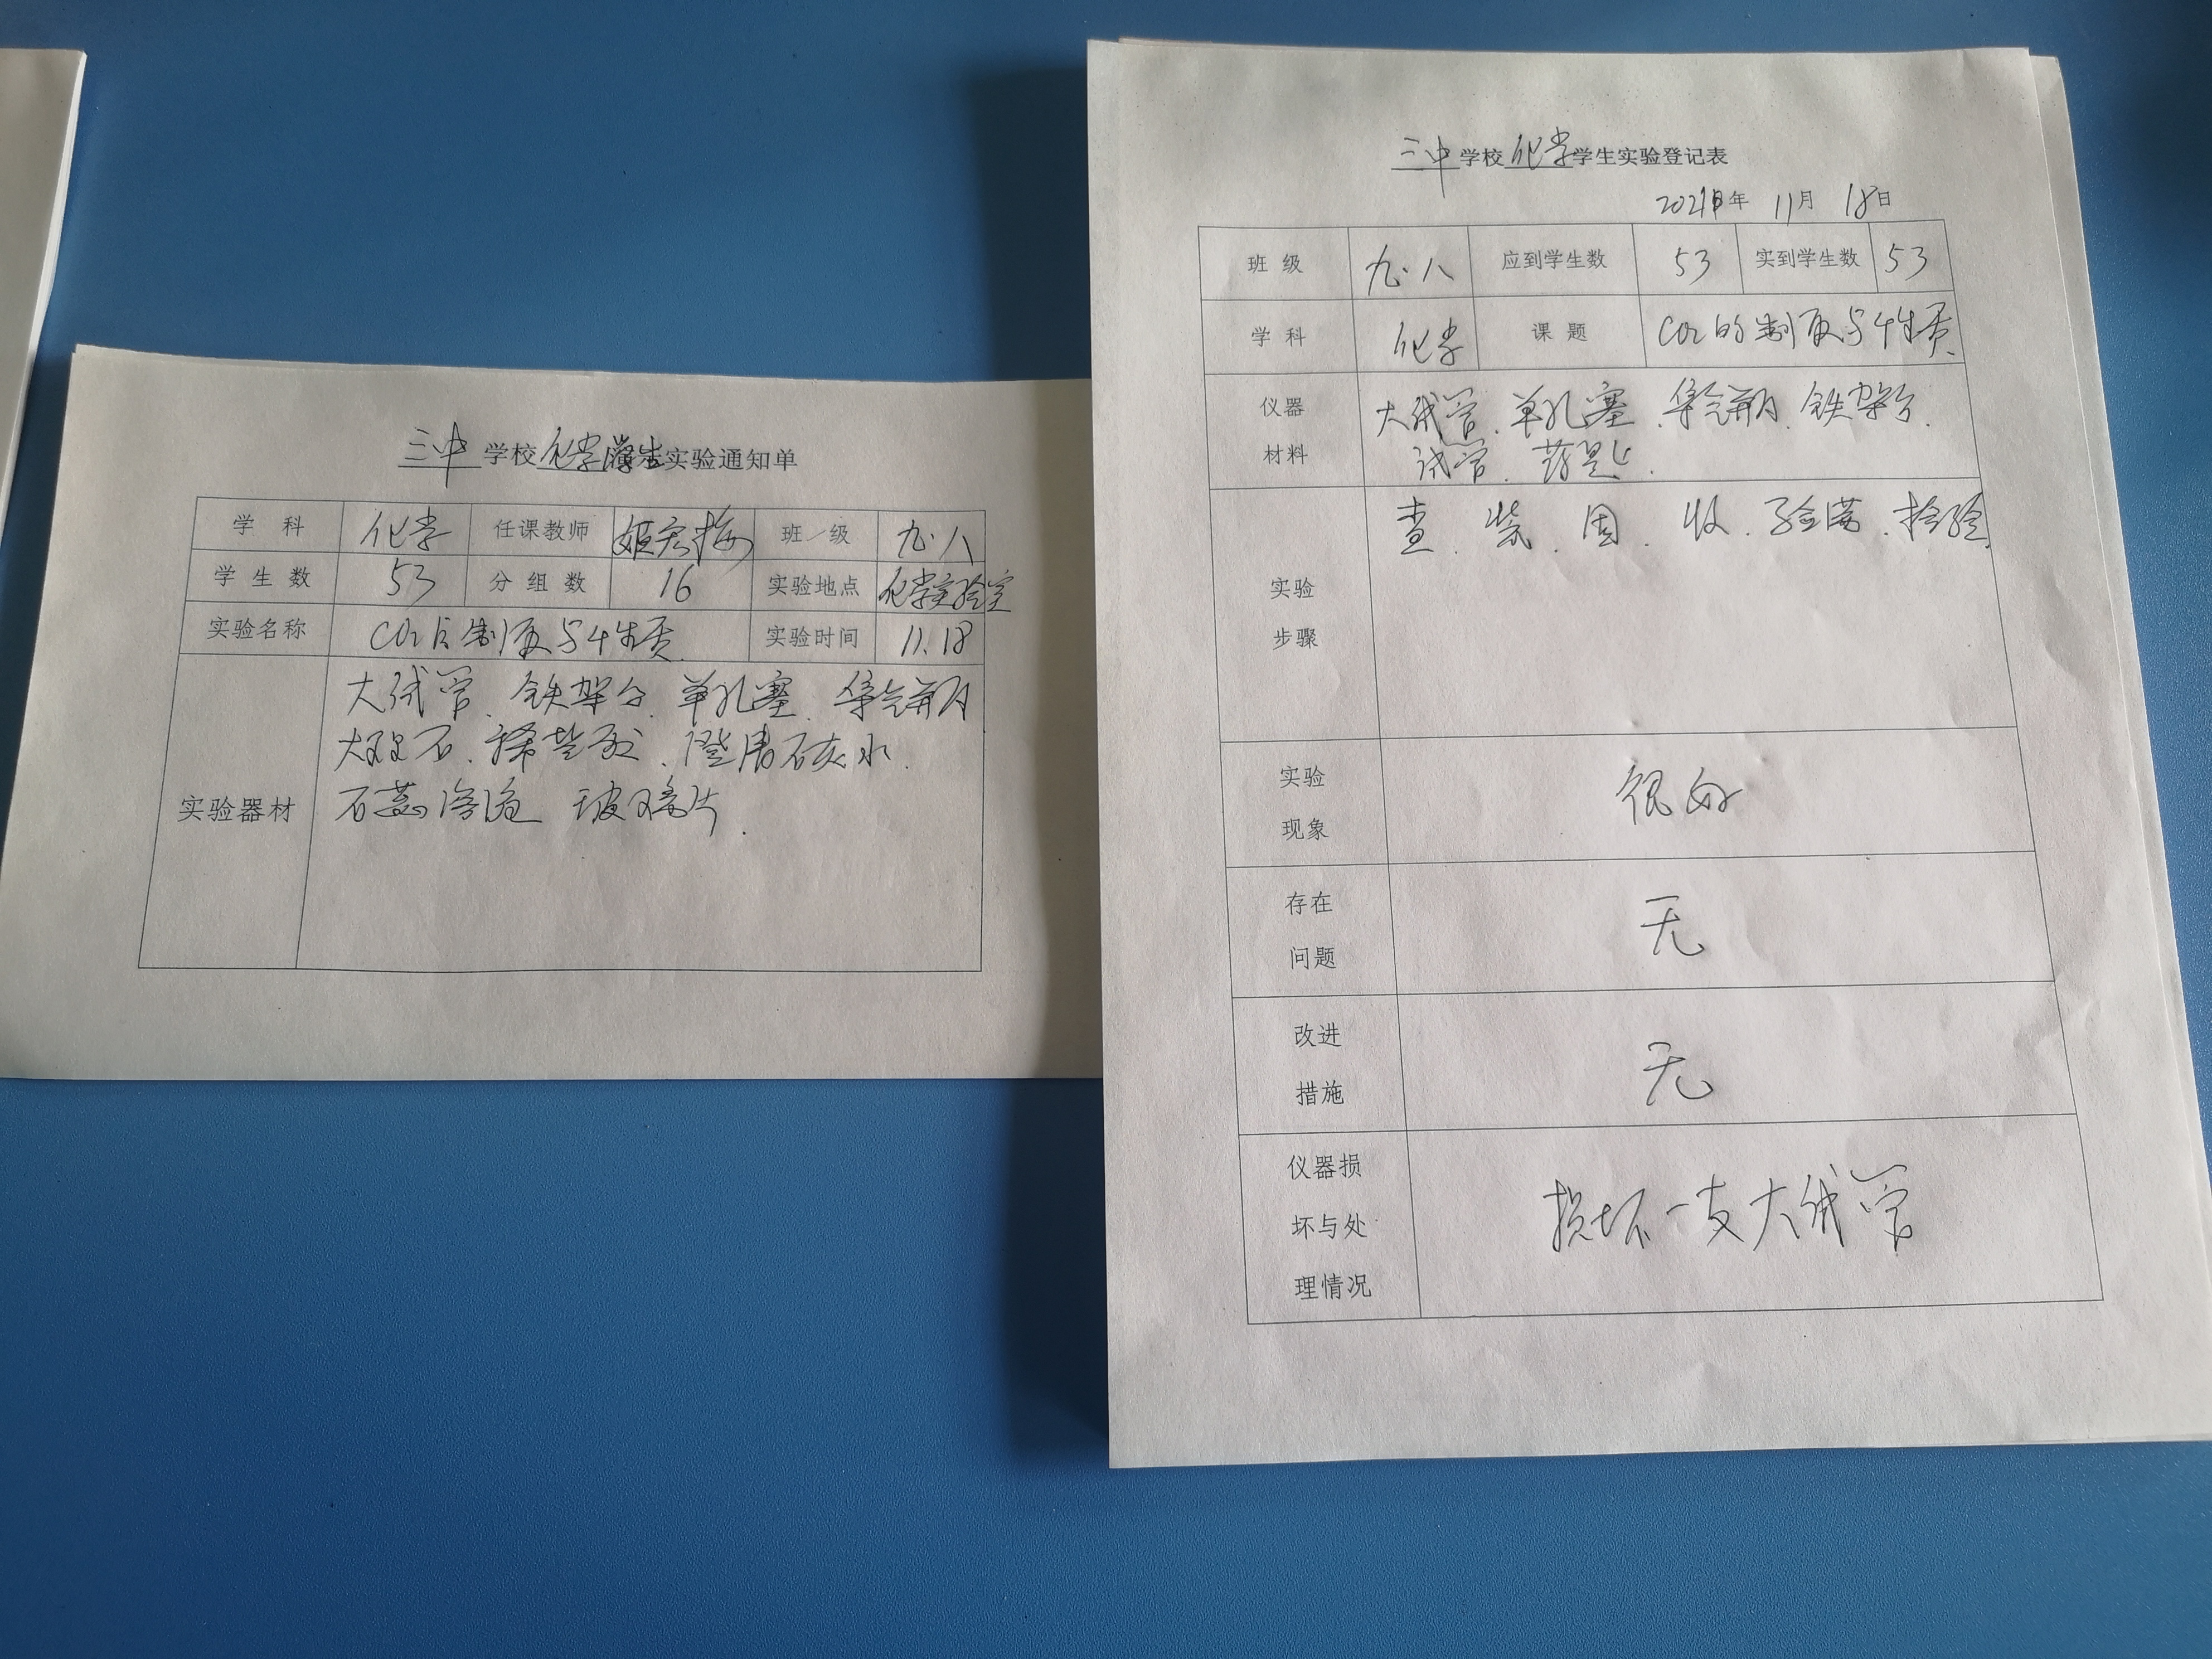 三中学校化学学生实验通知单
学科 化学 任课教师 姬宏梅 班级 九.八
学生数 53 分组数 16 实验地点 化学实验室
实验名称 CO2的制取与性质 实验时间 11.18
实验器材
大试管、铁架台、单孔塞、集气瓶
大理石、稀盐酸、澄清石灰水、
石蕊溶液 玻璃片.
三中学校化学学生实验登记表
2021年 11月 18日
班级 九.八 应到学生数 53 实到学生数 53
学科 化学 课题 CO2的制取与性质
仪器
材料
大试管、单孔塞、集气瓶、铁架台、
试管、药匙.
实验
步骤
查、装、固、收、验满、检验
实验
现象
很好
存在
问题
无
改进
措施
无
仪器损
坏与处
理情况
损坏一支大试管